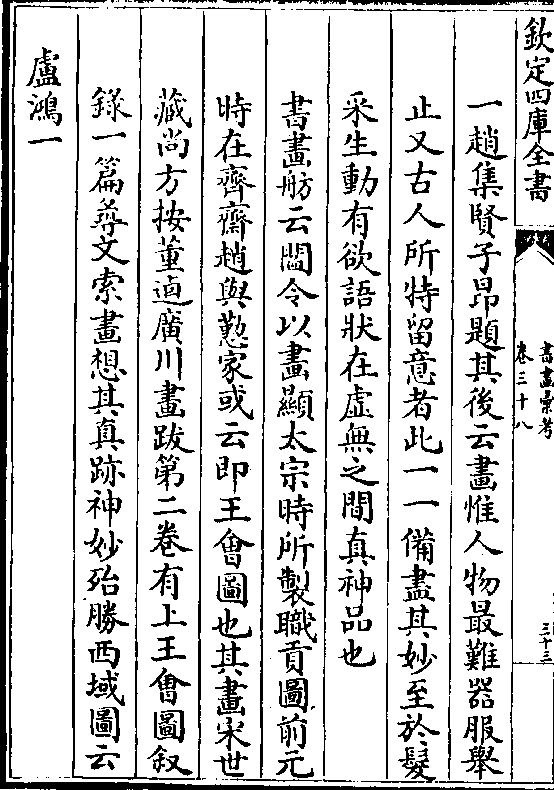 欽定四庫全書
書畫彙考
卷三十八
三十三
一趙集賢子昂題其後云畫惟人物最難器服舉
止又古人所特留意者此一一備盡其妙至於髮
采生動有欲語狀在虛無之間真神品也
書畫舫云閻令以畫顯太宗時所製職貢圖前元
時在齊齋趙與懃家或云即王會圖也其畫宋世
藏尚方按董逌廣川畫跋第二卷有上王會圖叙
錄一篇尋文索畫想其真跡神妙殆勝西域圖云
盧鴻一